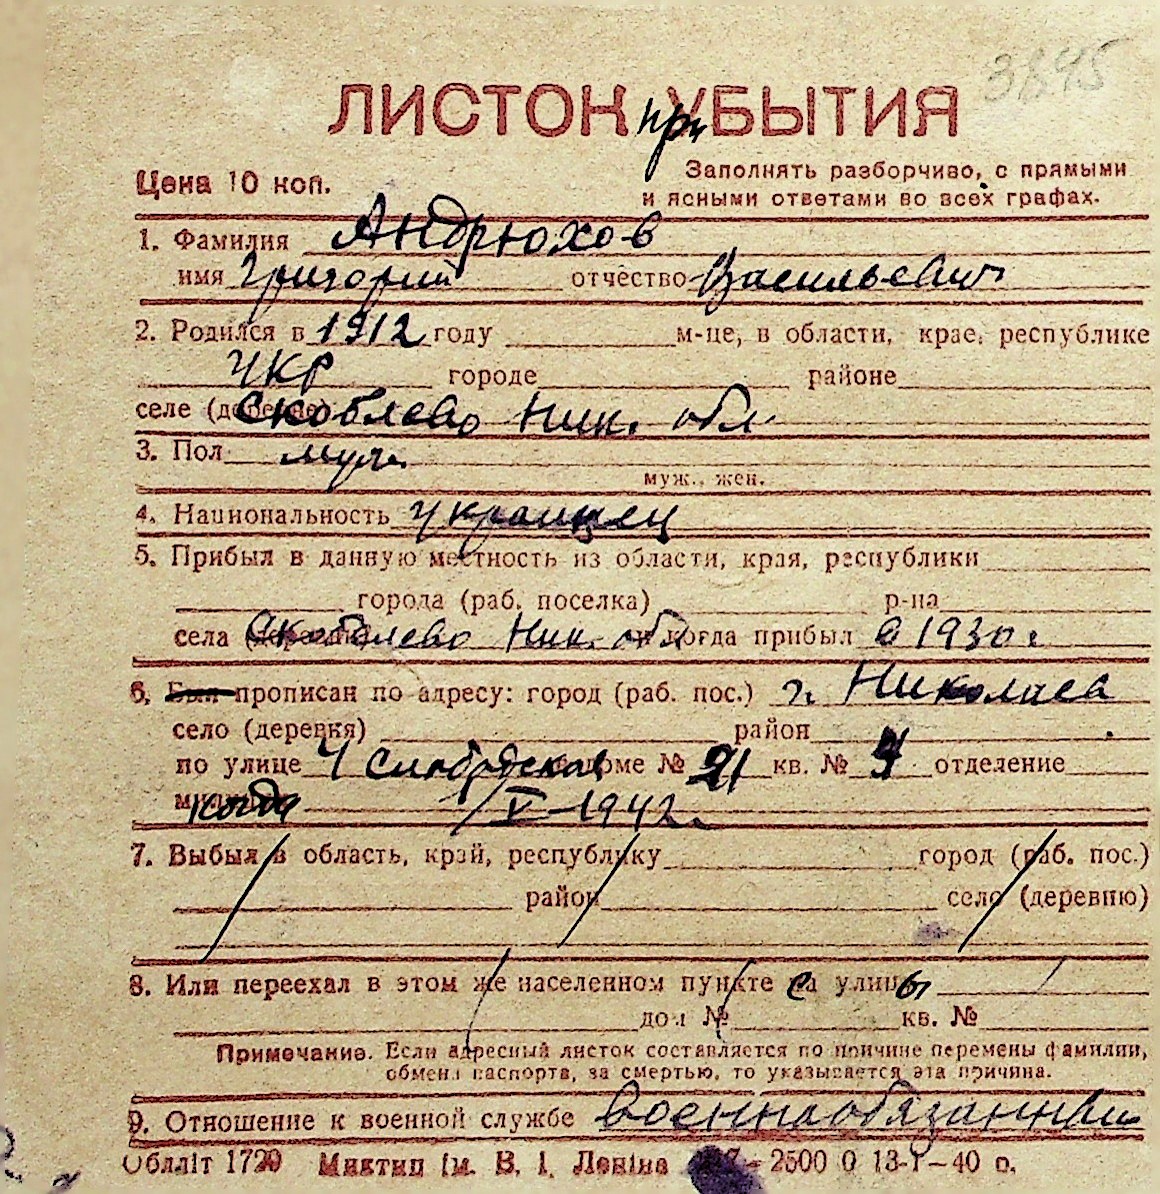 3845
ЛИСТОК при УБЫТИЯ
Цена 10 коп.
Заполнять разборчиво, с прямыми
и ясными ответами во всех графах.
1. Фамилия Андрюхов
имя Григорий отчество Васильевич
2. Родился в 1912 году м-це, в области, крае, республике
УКР городе районе
селе (деревне) Скоблево Ник. обл.
3. Пол муж.
муж., жен.
4. Национальность Украинец
5. Прибыл в данную местность из области, края, республики
города (раб. поселка) р-на
села Скобелево Ник. обл и когда прибыл с 1930 г.
6. Был прописан по адресу: город (раб. пос.) г. Николаев
село (деревня) район
по улице 4 Слободская доме № 21 кв. № 4 отделение
когда V-1942 г.
7. Выбыл в область, край, республику город (раб. пос.)
район село (деревню)
8. Или переехал в этом же населенном пункте с улицы
дом № кв. №
Примечание. Если адресный листок составляется по причине перемены фамилии,
обмена паспорта, за смертью, то указывается эта причина.
9. Отношение к военной службе военнообязанный
Обллiт 1729 Миктип iм. В. I. Ленiна 2500 0 13-1-40 р.